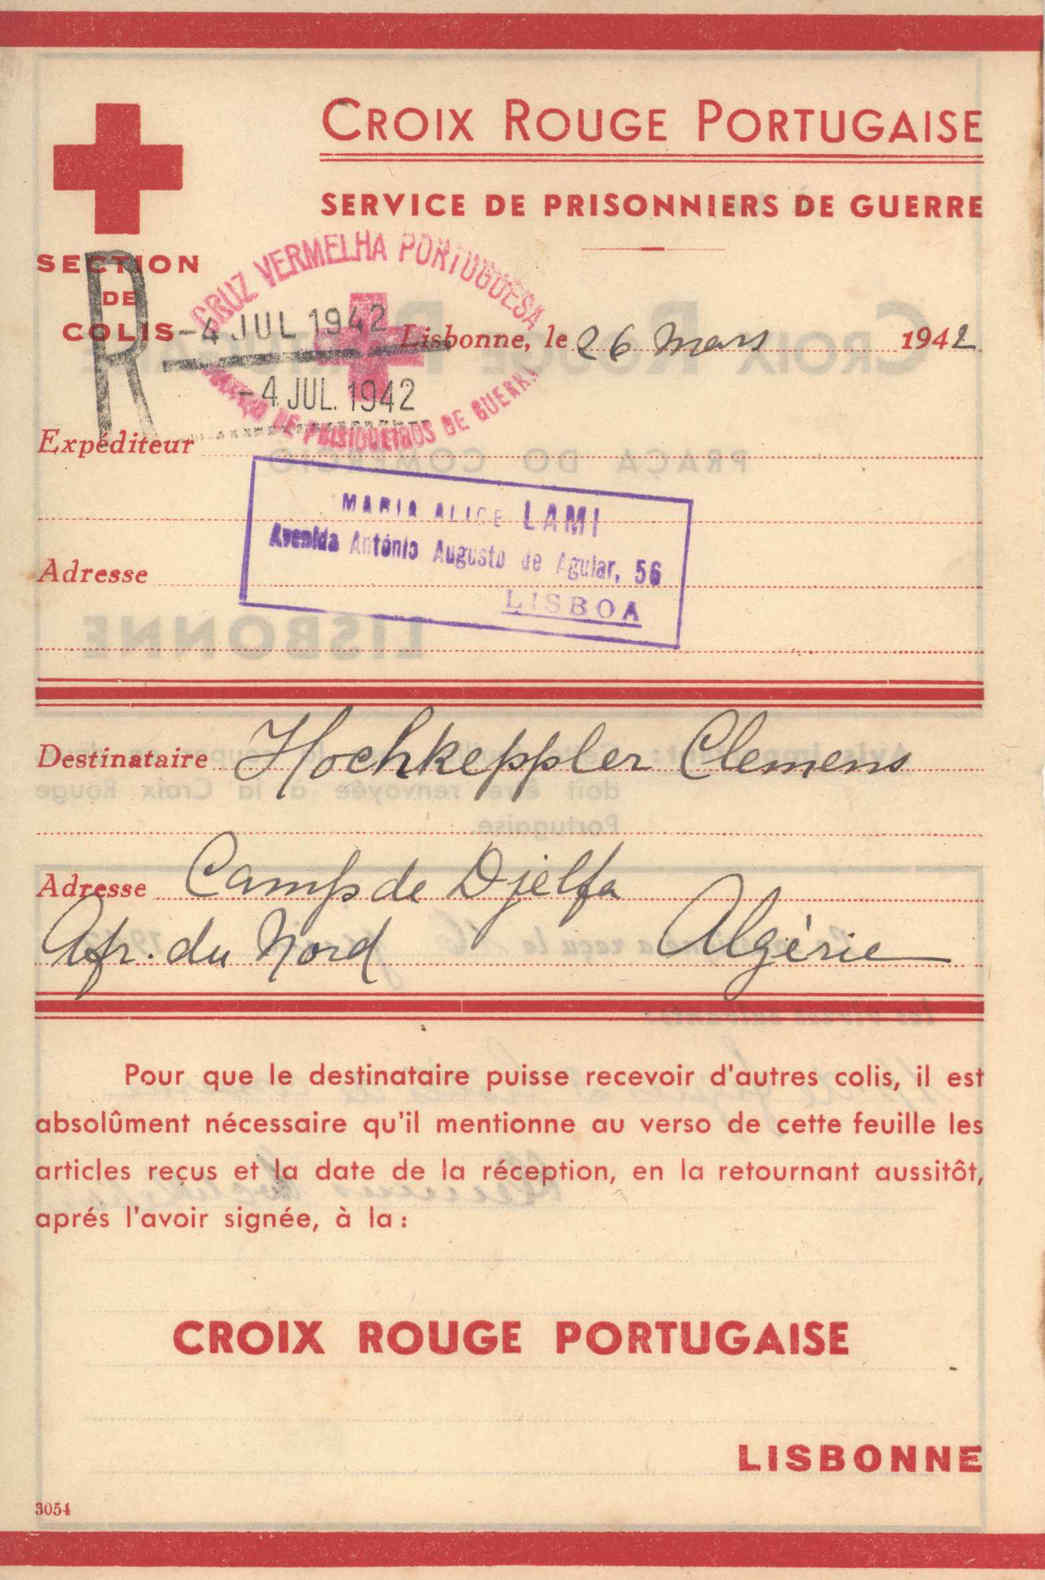 CROIX ROUGE PORTUGAISE
SERVICE DE PRISONNIERS DE GUERRE
SECTION
DE
COLIS
R
CRUZ VERMELHA PORTUGUESA
DE PRISIONEIROS DE GUERRA
-4 JUL 1942
-4 JUL. 1942
Lisbonne, le 26 Mars 1942
Expéditeur
MARIA ALICE LAMI
Avenida António Augusto de Aguiar, 56
LISBOA
Adresse
Destinataire Hochkeppler Clemens
Adresse Camp de Djelfa
Afr. du Nord Algérie
Pour que le destinataire puisse recevoir d'autres colis, il est
absolûment nécessaire qu'il mentionne au verso de cette feuille les
articles reçus et la date de la réception, en la retournant aussitôt,
aprés l'avoir signée, à la :
CROIX ROUGE PORTUGAISE
LISBONNE
3054